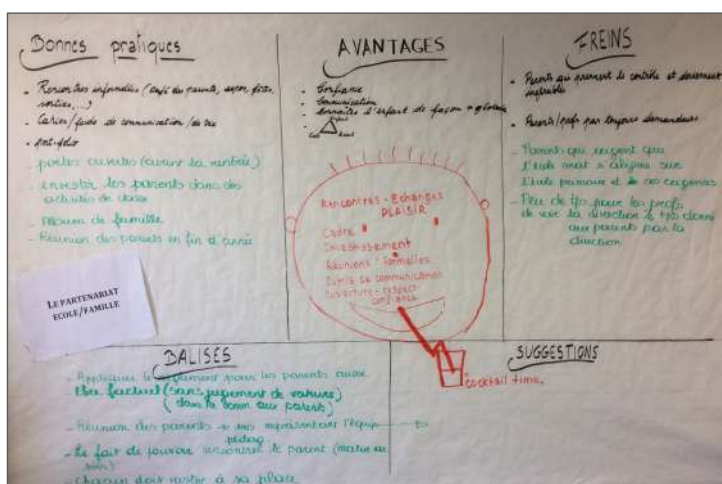 Bonnes pratiques
- Rencontres informelles (café des parents, expo, fête,
sorties, ...)
- Cahier/farde de communication/de vie
- Port-folio
- portes ouvertes (avant la rentrée)
- investir les parents dans des
activités de classe
- Album de famille
- Réunion des parents en fin d'année
LE PARTENARIAT
ECOLE/FAMILLE
AVANTAGES
- Confiance
- Communication
- Connaître l'enfant de façon + globale
Rencontres - Echanges
PLAISIR
Cadre
Investissement
Réunions formelles
Outils de communication
Ouverture - respect
confiance
cocktail time.
FREINS
- Parents qui prennent le contrôle et deviennent
- Parents/profs pas toujours demandeurs
- Parents qui exigent que
l'école mat s'aligne sur
l'école primaire et ses exigences
- Peu de tps pour les profs
de voir la direction & tps donné
aux parents par la
direction
BALISES
- Appliquer le règlement pour les parents aussi
factuel (sans jugement de valeurs)
(dans la comm aux parents)
- Réunion des parents représentant l'équipe
pédag
- Le fait de pouvoir rencontrer le parent (matin ou
soir)
- Chacun doit rester à sa place
SUGGESTIONS